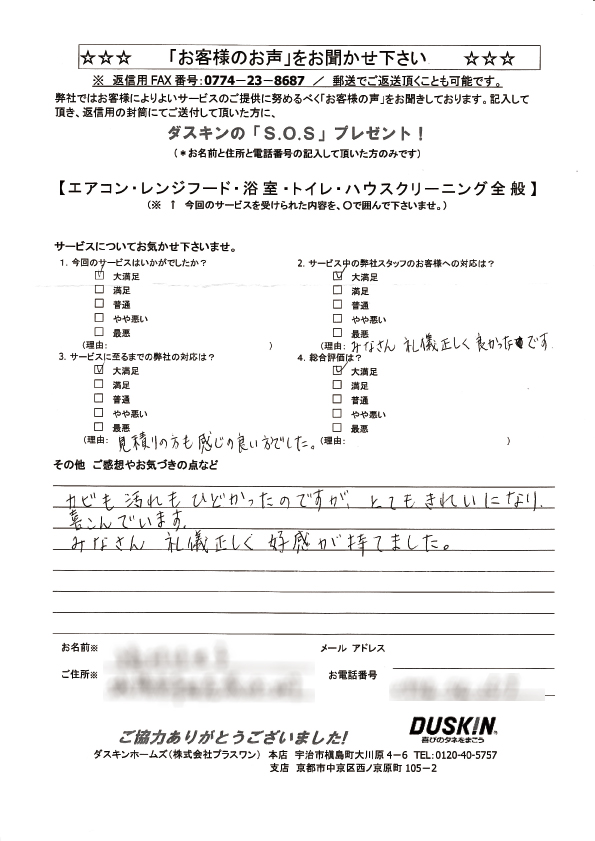 ☆☆☆ 「お客様のお声」をお聞かせ下さい ☆☆☆
※ 返信用FAX番号:0774-23-8687 / 郵送でご返送頂くことも可能です。
弊社ではお客様によりよいサービスのご提供に努めるべく「お客様の声」をお聞きしております。記入して
頂き、返信用の封筒にてご送付して頂いた方に、
ダスキンの「S.O.S」プレゼント!
(*お名前と住所と電話番号の記入して頂いた方のみです)
【エアコン・レンジフード・浴室・トイレ・ハウスクリーニング全般】
(※ ↑ 今回のサービスを受けられた内容を、〇で囲んで下さいませ。)
サービスについてお気かせ下さいませ。
1. 今回のサービスはいかがでしたか?
大満足
満足
普通
やや悪い
最悪
(理由: )
2. サービス中の弊社スタッフのお客様への対応は?
大満足
満足
普通
やや悪い
最悪
(理由: みなさん 礼儀正しく良かったです
3. サービスに至るまでの弊社の対応は?
大満足
満足
普通
やや悪い
最悪
(理由: 見積りの方も感じの良い方でした。
4. 総合評価は?
大満足
満足
普通
やや悪い
最悪
(理由: )
その他 ご感想やお気づきの点など
カビも汚れもひどかったのですが、とてもきれいになり、
喜こんでいます。
みなさん 礼儀正しく好感が持てました。
お名前※
メール アドレス
ご住所※
お電話番号
ご協力ありがとうございました!
DUSKIN
喜びのタネをまこう
ダスキンホームズ(株式会社プラスワン) 本店 宇治市槇島町大川原4-6 TEL:0120-40-5757
支店 京都市中京区西ノ京原町105-2